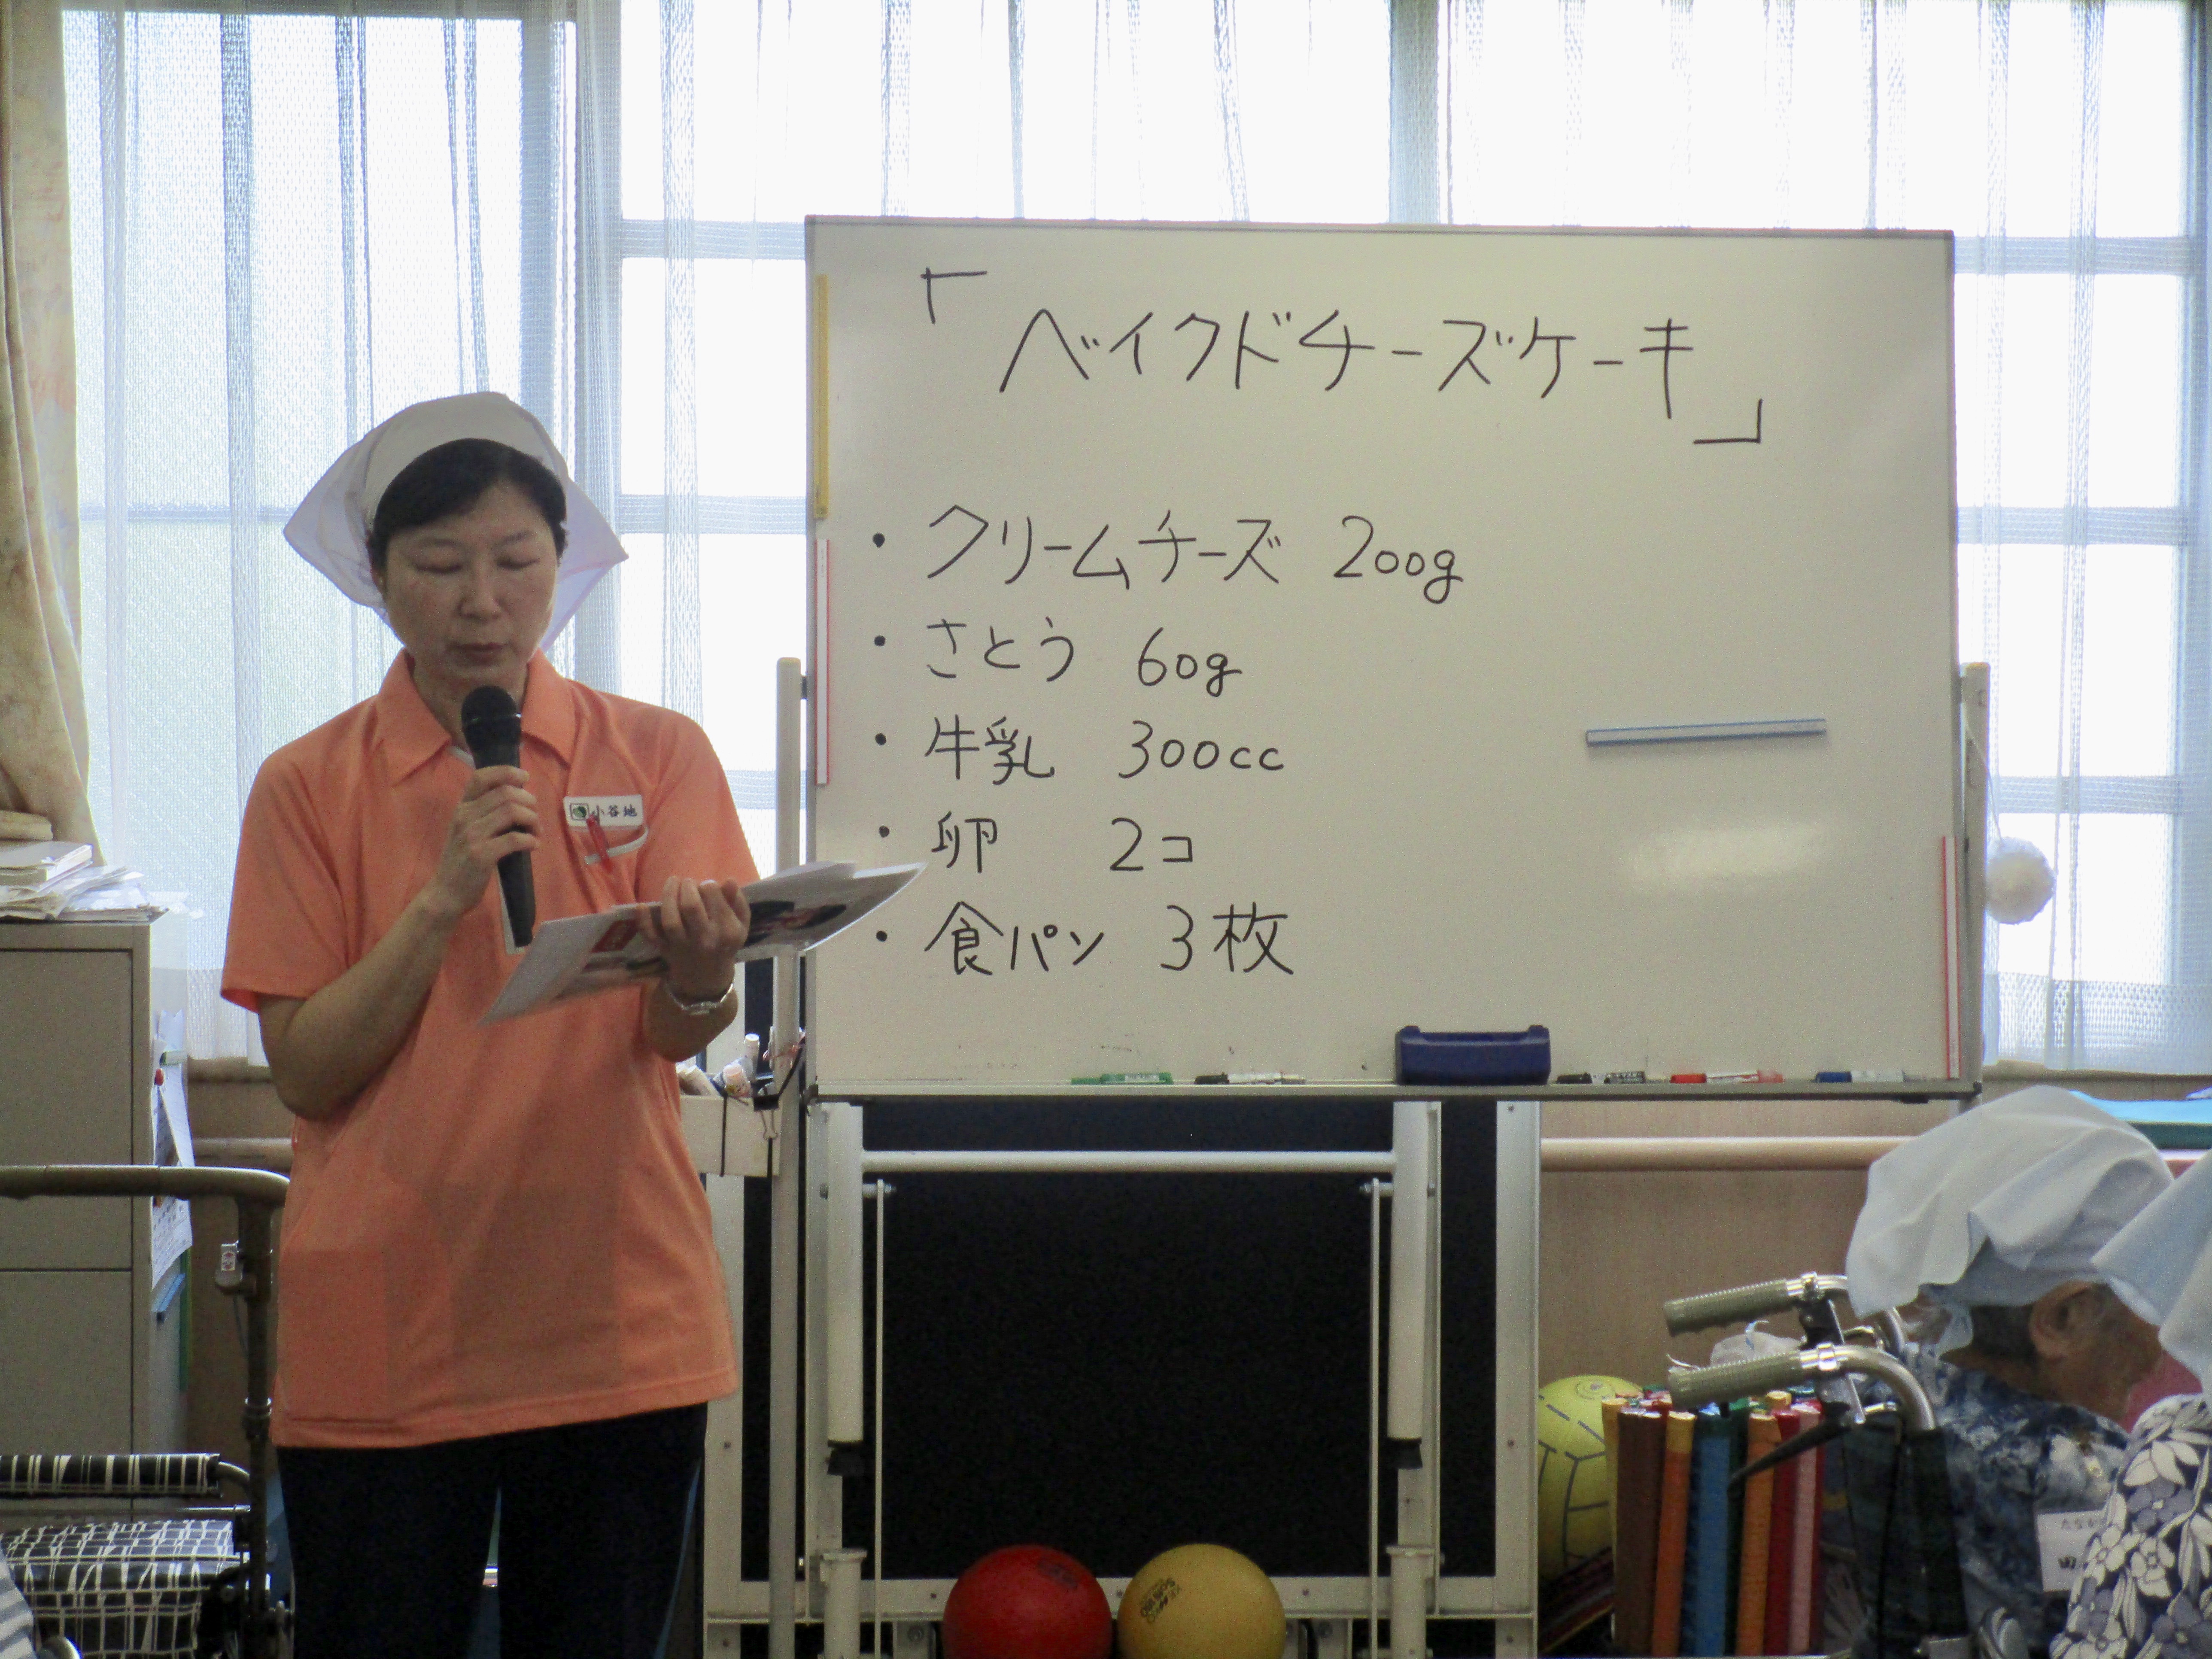 「ベイクドチーズケーキ」
・クリームチーズ 200g
・さとう 60g
・牛乳 300cc
・卵 2コ
・食パン 3枚
小谷地